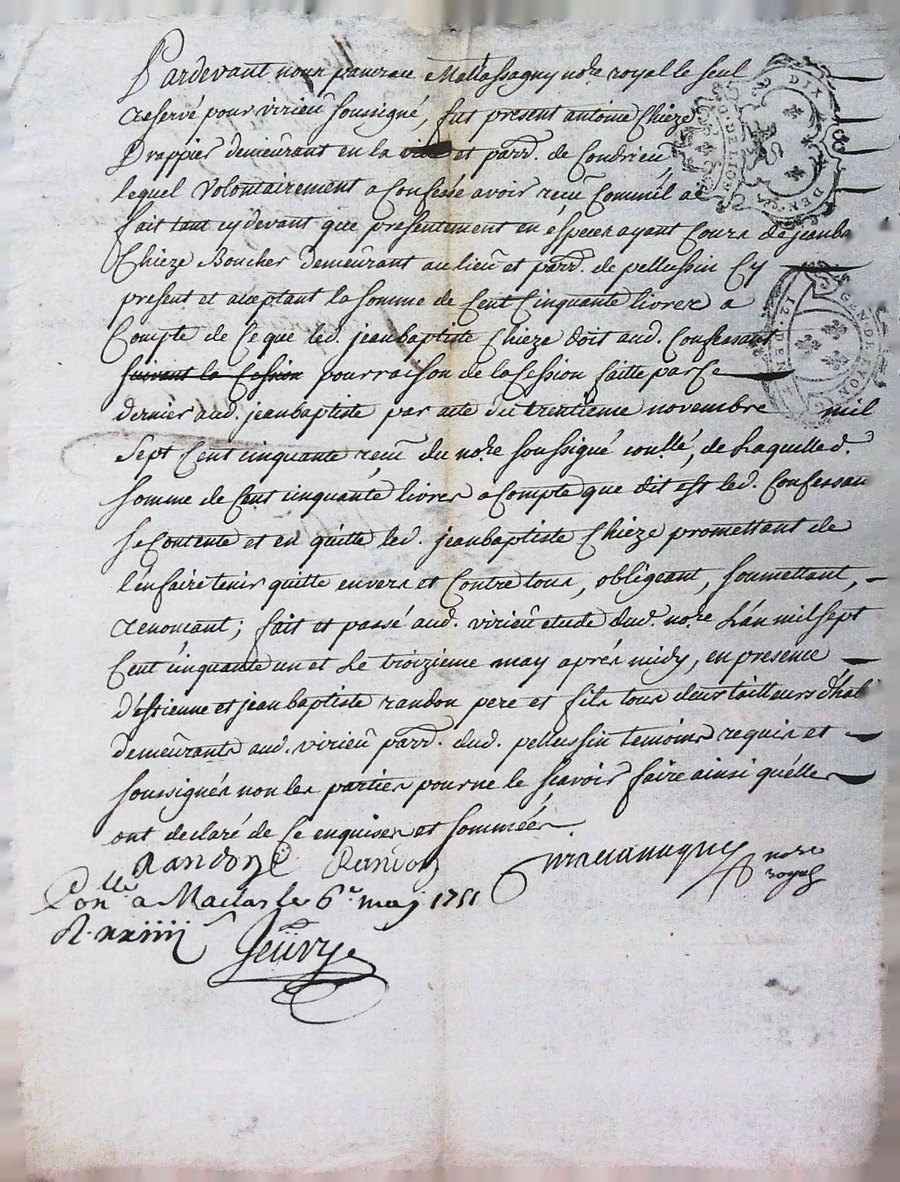 Pardevant nous pancrace Mellassagny nore. royal le seul
Reservé pour virieu soussigné, fut present antoine Chieze
Drappier demeurant en la et parr. de Condrieu
lequel volontairement a Confessé avoir reçu Comme il a
fait tant cy devant que presentement en especes ayant Cours de jean ba
Chieze Boucher demeurant au lieu et parr. de pellussin Cy
present et aceptant la somme de Cent Cinquante livres a
Compte de Ce que led. jean baptiste Chieze doit aud. Confessant
suivant la Cession pour raison de la Cession faitte par Ce
dernier aud. jean baptiste par acte du trentieme novembre mil
sept Cent cinquante reçu du nore. soussigné de Laquelle d.
somme de Cent cinquante livres a Compte que dit est led. Confessan
se Contente et en quitte led. jean baptiste Chieze promettant de
l'en faire tenir quitte envers et Contre tous, obligeant, soumettant,
Renoncant; fait et passé aud. virieu etude dud. nore. L'an mil sept
Cent cinquante un et Le troizieme may aprés midy, en presence
d'estienne et jean baptiste randon pere et fils tous deux tailleurs d'hab
demeurants aud. virieu parr. dud. pellussin temoins requis et
soussignés non les parties pour ne le scavoir faire ainsi qu'elles
ont declaré de Ce enquises et sommées.
Randon Randon
nore
royal
Conlle a Maclas le 6e. may 1751
R. xxiiii
DIX DEN
12. DEN
GEN. DE LYON